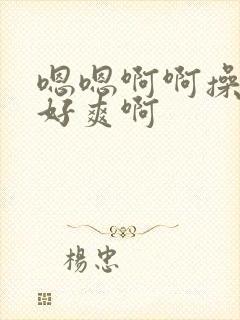 嗯嗯啊啊操
好爽啊
楊忠